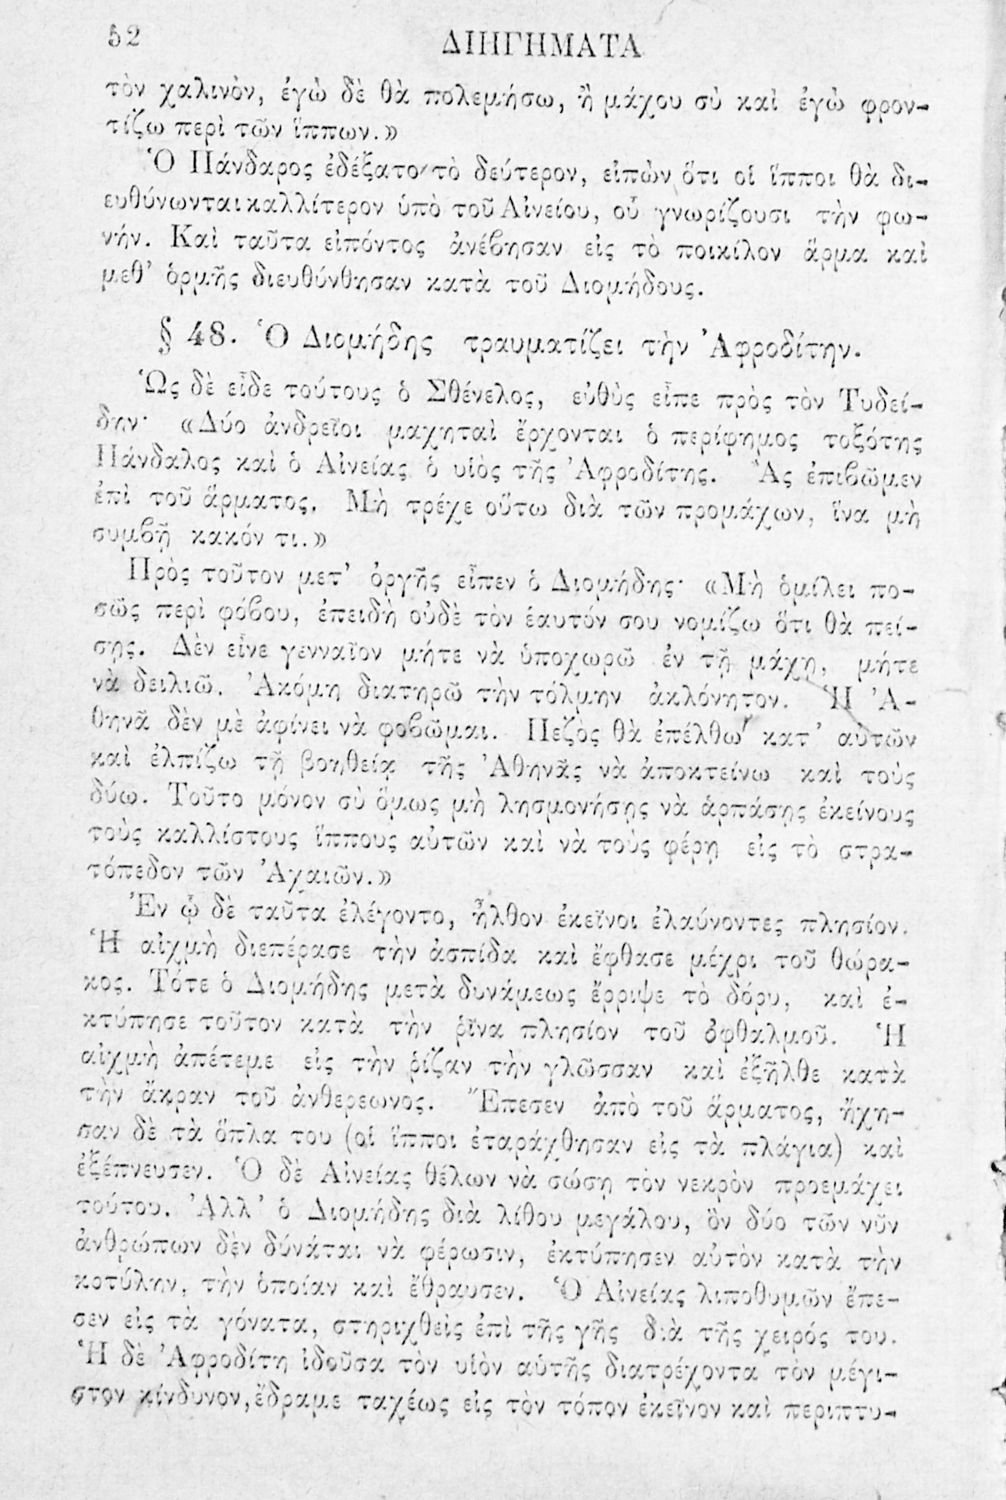 52
ΔΙΗΓΗΜΑΤΑ
τὸν χαλινὸν, ἐγὼ δὲ θὰ πολεμήσω, ἢ μάχου σὺ καὶ ἐγὼ φρον-
τίζω περὶ τῶν ἵππων.»
Ὁ Πάνδαρος ἐδέξατο τὸ δεύτερον, εἰπὼν ὅτι οἱ ἵπποι θὰ δι-
ευθύνωνται καλλίτερον ὑπὸ τοῦ Αἰνείου, οὗ γνωρίζουσι τὴν φω-
νήν. Καὶ ταῦτα εἰπόντος ἀνέβησαν εἰς τὸ ποικίλον ἅρμα καὶ
μεθ' ὁρμῆς διευθύνθησαν κατὰ τοῦ Διομήδους.
§ 48. Ὁ Διομήδης τραυματίζει τὴν Ἀφροδίτην.
Ὡς δὲ εἶδε τούτους ὁ Σθένελος, εὐθὺς εἶπε πρὸς τὸν Τυδεί-
δην· «Δύο ἀνδρεῖοι μαχηταὶ ἔρχονται ὁ περίφημος τοξότης
Πάνδαλος καὶ ὁ Αἰνείας ὁ υἱὸς τῆς Ἀφροδίτης. Ἂς ἐπιβῶμεν
ἐπὶ τοῦ ἅρματος. Μὴ τρέχε οὕτω διὰ τῶν προμάχων, ἵνα μὴ
συμβῇ κακόν τι.»
Πρὸς τοῦτον μετ' ὀργῆς εἶπεν ὁ Διομήδης· «Μὴ ὁμίλει πο-
σῶς περὶ φόβου, ἐπειδὴ οὐδὲ τὸν ἑαυτόν σου νομίζω ὅτι θὰ πεί-
σῃς. Δὲν εἶνε γενναῖον μήτε νὰ ὑποχωρῶ ἐν τῇ μάχῃ, μήτε
νὰ δειλιῶ. Ἀκόμη διατηρῶ τὴν τόλμην ἀκλόνητον. Ἡ Ἀ-
θηνᾶ δὲν μὲ ἀφίνει νὰ φοβῶμαι. Πεζὸς θὰ ἐπέλθω κατ' αὐτῶν
καὶ ἐλπίζω τῇ βοηθείᾳ τῆς Ἀθηνᾶς νὰ ἀποκτείνω καὶ τοὺς
δύω. Τοῦτο μόνον σὺ ὅμως μὴ λησμονήσῃς νὰ ἁρπάσῃς ἐκείνους
τοὺς καλλίστους ἵππους αὐτῶν καὶ νὰ τοὺς φέρῃ εἰς τὸ στρα-
τόπεδον τῶν Ἀχαιῶν.»
Ἐν ᾧ δὲ ταῦτα ἐλέγοντο, ἦλθον ἐκεῖνοι ἐλαύνοντες πλησίον.
Ἡ αἰχμὴ διεπέρασε τὴν ἀσπίδα καὶ ἔφθασε μέχρι τοῦ θώρα-
κος. Τότε ὁ Διομήδης μετὰ δυνάμεως ἔρριψε τὸ δόρυ, καὶ ἐ-
κτύπησε τοῦτον κατὰ τὴν ῥῖνα πλησίον τοῦ ὀφθαλμοῦ. Ἡ
αἰχμὴ ἀπέτεμε εἰς τὴν ῥίζαν τὴν γλῶσσαν καὶ ἐξῆλθε κατὰ
τὴν ἄκραν τοῦ ἀνθερεωνος. Ἔπεσεν ἀπὸ τοῦ ἅρματος, ἤχη-
σαν δὲ τὰ ὅπλα του (οἱ ἵπποι ἐταράχθησαν εἰς τὰ πλάγια) καὶ
ἐξέπνευσεν. Ὁ δὲ Αἰνείας θέλων νὰ σώσῃ τὸν νεκρὸν προεμάχει
τούτου. Ἀλλ' ὁ Διομήδης διὰ λίθου μεγάλου, ὃν δύο τῶν νῦν
ἀνθρώπων δὲν δύναται νὰ φέρωσιν, ἐκτύπησεν αὐτὸν κατὰ τὴν
κοτύλην, τὴν ὁποίαν καὶ ἔθραυσεν. Ὁ Αἰνείας λιποθυμῶν ἔπε-
σεν εἰς τὰ γόνατα, στηριχθεὶς ἐπὶ τῆς γῆς διὰ τῆς χειρός του.
Ἡ δὲ Ἀφροδίτη ἰδοῦσα τὸν υἱὸν αὑτῆς διατρέχοντα τὸν μέγι-
στον κίνδυνον, ἔδραμε ταχέως εἰς τὸν τόπον ἐκεῖνον καὶ περιπτυ-